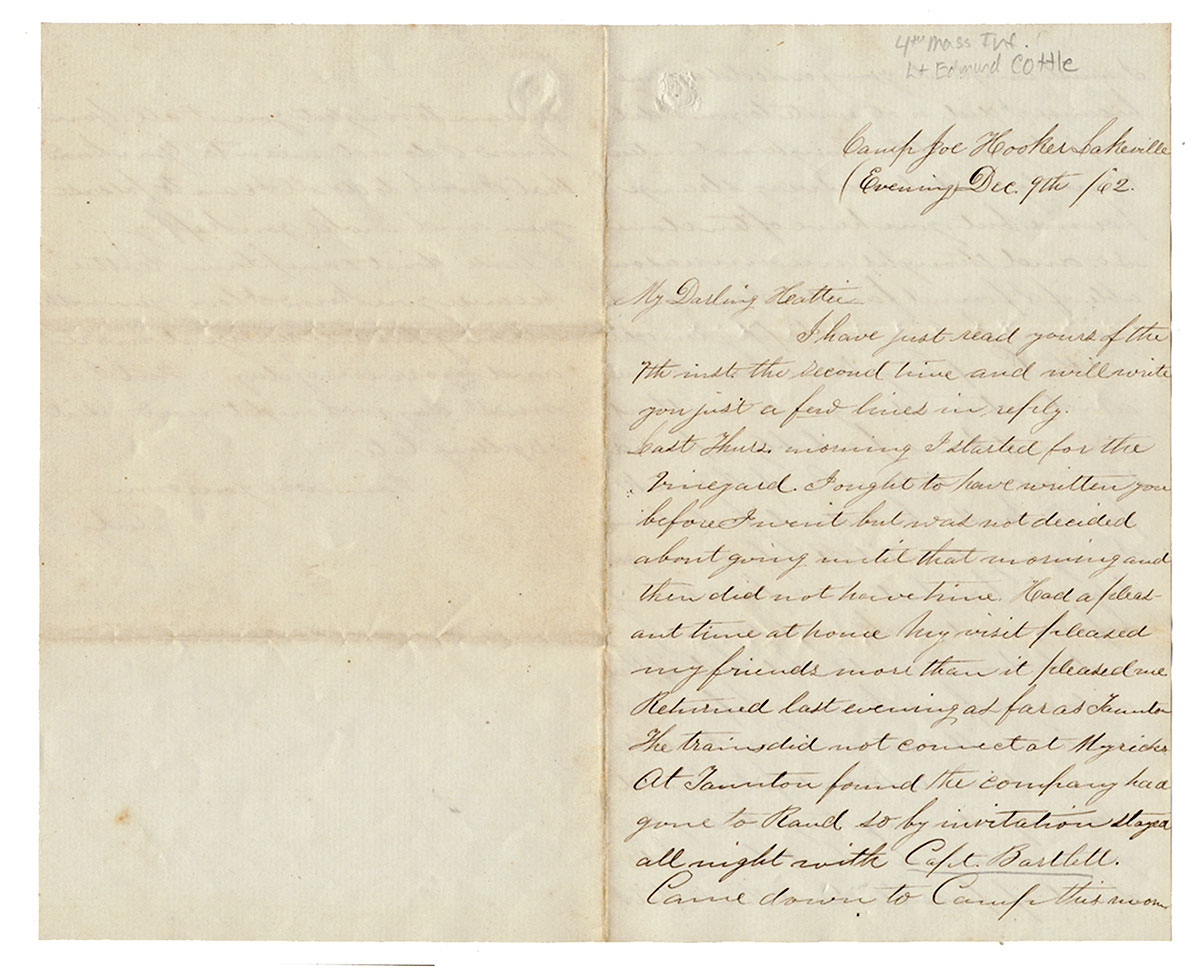 4th Mass Inf.
Lt Edmund Cottle
Camp Joe Hooker Lakeville
(Evening) Dec. 9th /62.
My Darling Hattie
I have just read yours of the
7th inst. the second time and will write
you just a few lines in reply.
Last Thurs. morning I started for the
Vineyard. I ought to have written you
before I went but was not decided
about going until that morning and
then did not have time. Had a pleas-
ant time at home My visit pleased
my friends more than it pleased me
Returned last evening as far as Taunton
The trains did not connect at Myricks
At Taunton found the company had
gone to Rand so by invitation stayed
all night with Capt. Bartlett.
Came down to Camp this morn